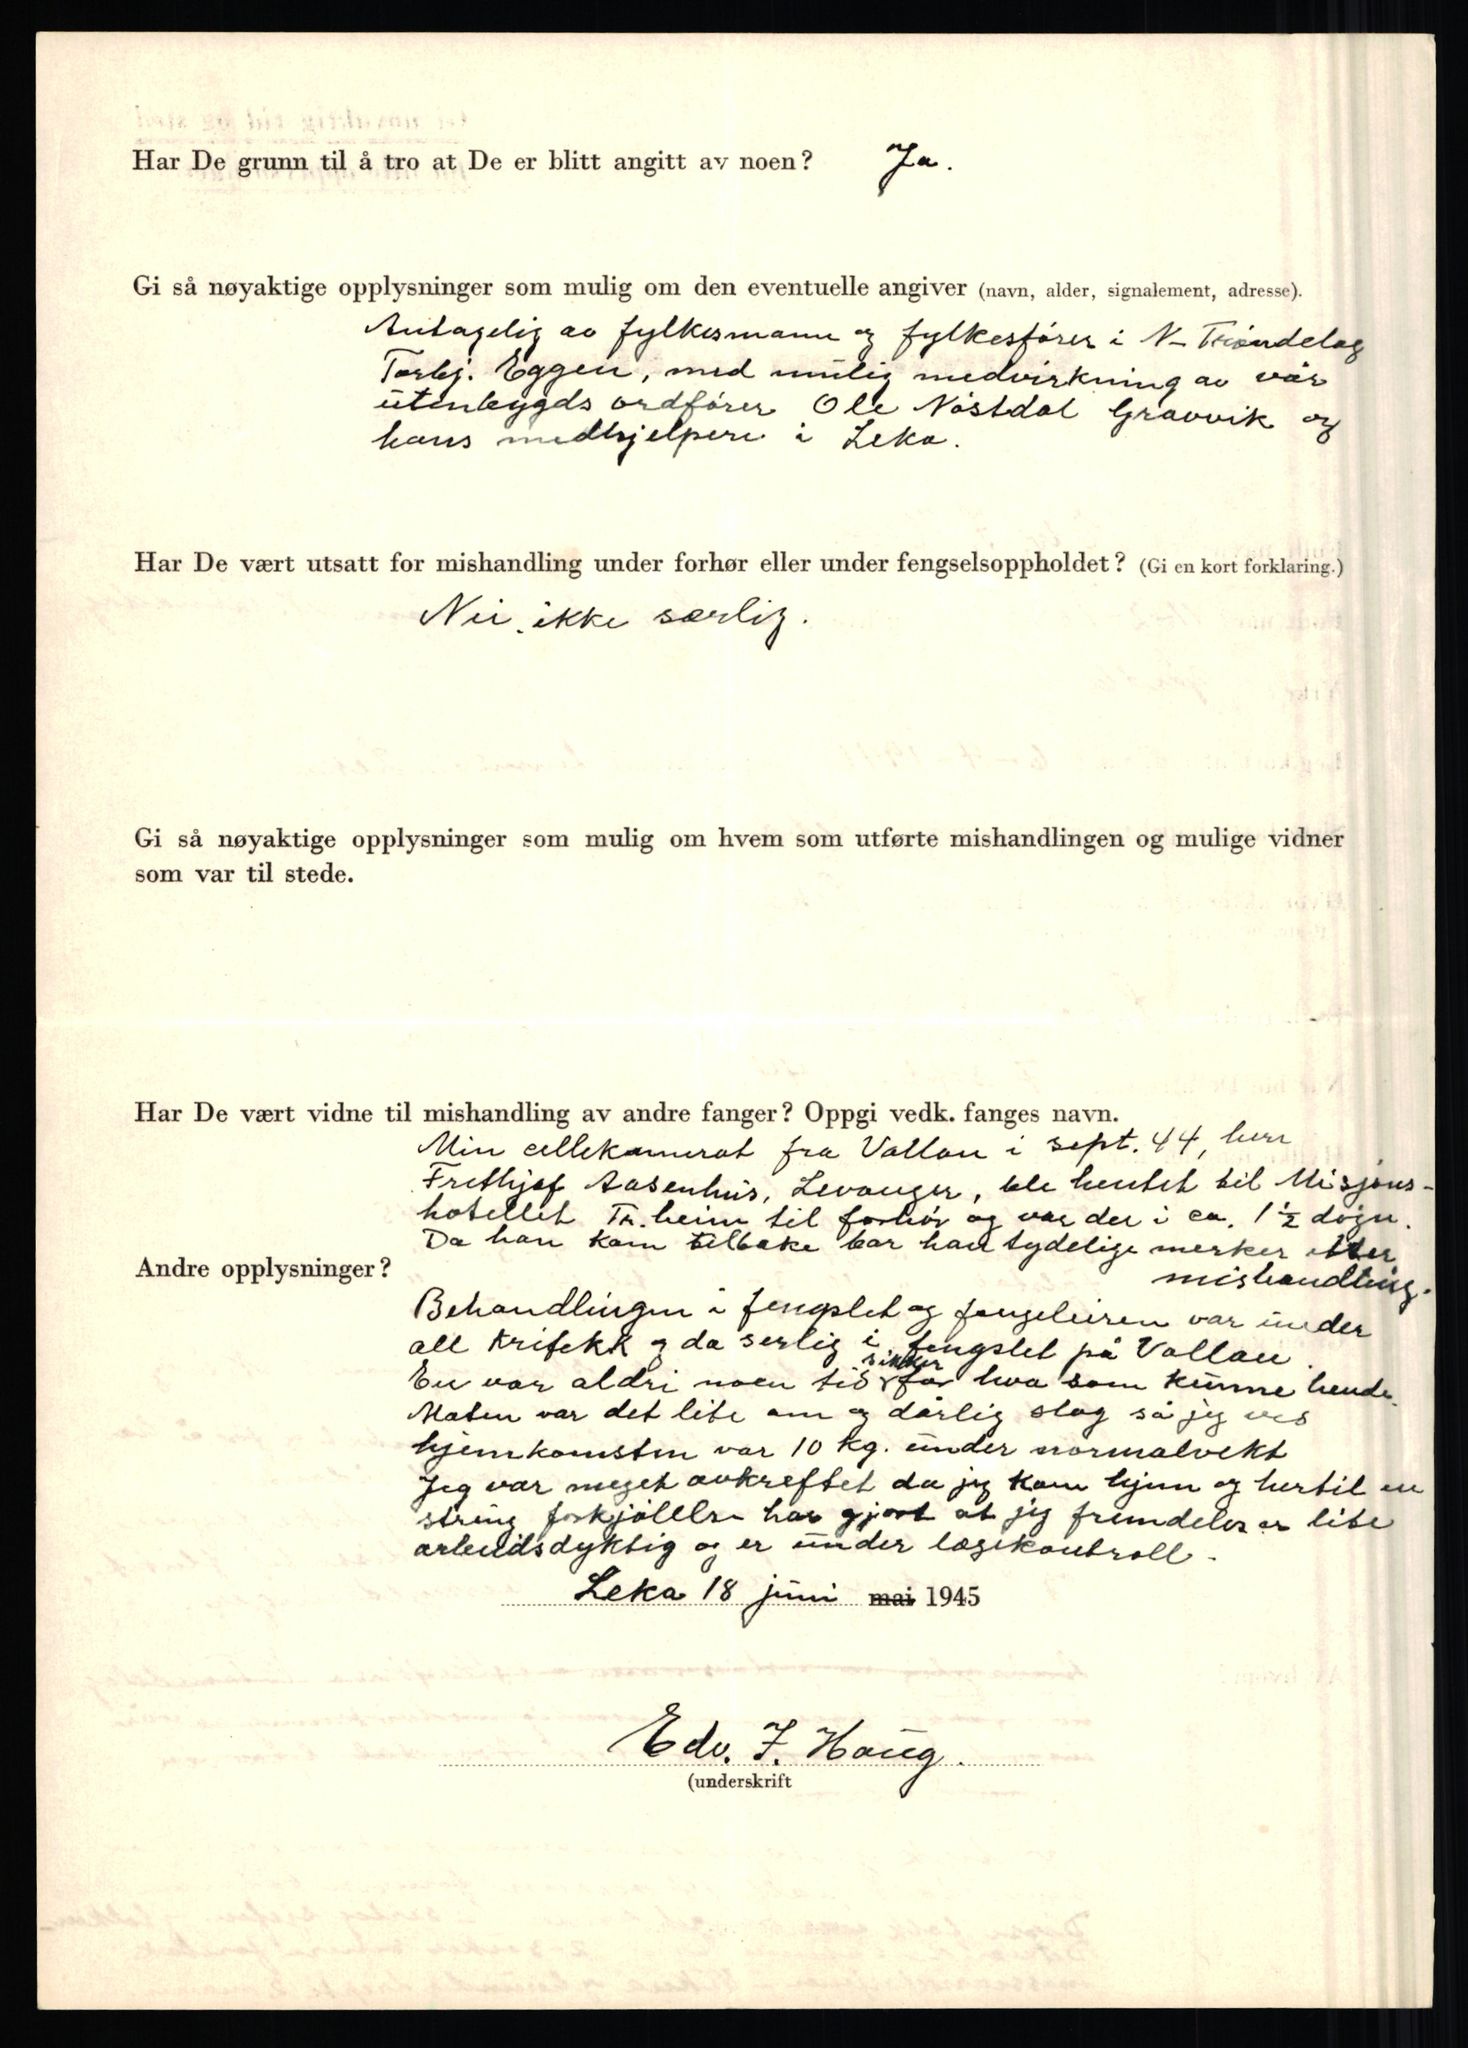 Har De grunn til å tro at De er blitt angitt av noen? Ja.
Gi så nøyaktige opplysninger som mulig om den eventuelle angiver (navn, alder, signalement, adresse).
Antagelig av fylkesmann og fylkesfører i N-Trøndelag
Torbj. Eggen, med mulig medvirkning av vår
utenbygds ordfører Ole Nøstdal Gravvik og
hans medhjelpere i Leka.
Har De vært utsatt for mishandling under forhør eller under fengselsoppholdet? (Gi en kort forklaring.)
Nei, ikke særlig.
Gi så nøyaktige opplysninger som mulig om hvem som utførte mishandlingen og mulige vidner
som var til stede.
Har De vært vidne til mishandling av andre fanger? Oppgi vedk. fanges navn.
Min cellekamerat fra Vollan i sept. 44, herr
Frethjof Aasenhus, Levanger, ble hentet til Misjons-
hotellet Tr.heim til forhør og var der i ca. 1 1/2 døgn.
Da han kom tilbake bar han tydelige merker etter
mishandling.
Andre opplysninger?
Behandlingen i fengslet og fangeleiren var under
all kritekk og da serlig i fengslet på Vollan.
En var aldri noen tid sikker for hva som kunne hende.
Maten var det lite om og dårlig slag så jeg ved
hjemkomsten var 10 kg. under normalvekt
Jeg var meget avkreftet da jeg kom hjem og hertil en
streng forkjølelse har gjort at jeg fremdeles er lite
arbeidsdyktig og er under legekontroll.
Leka 18 juni mai 1945
Edv. F. Haug.
(underskrift